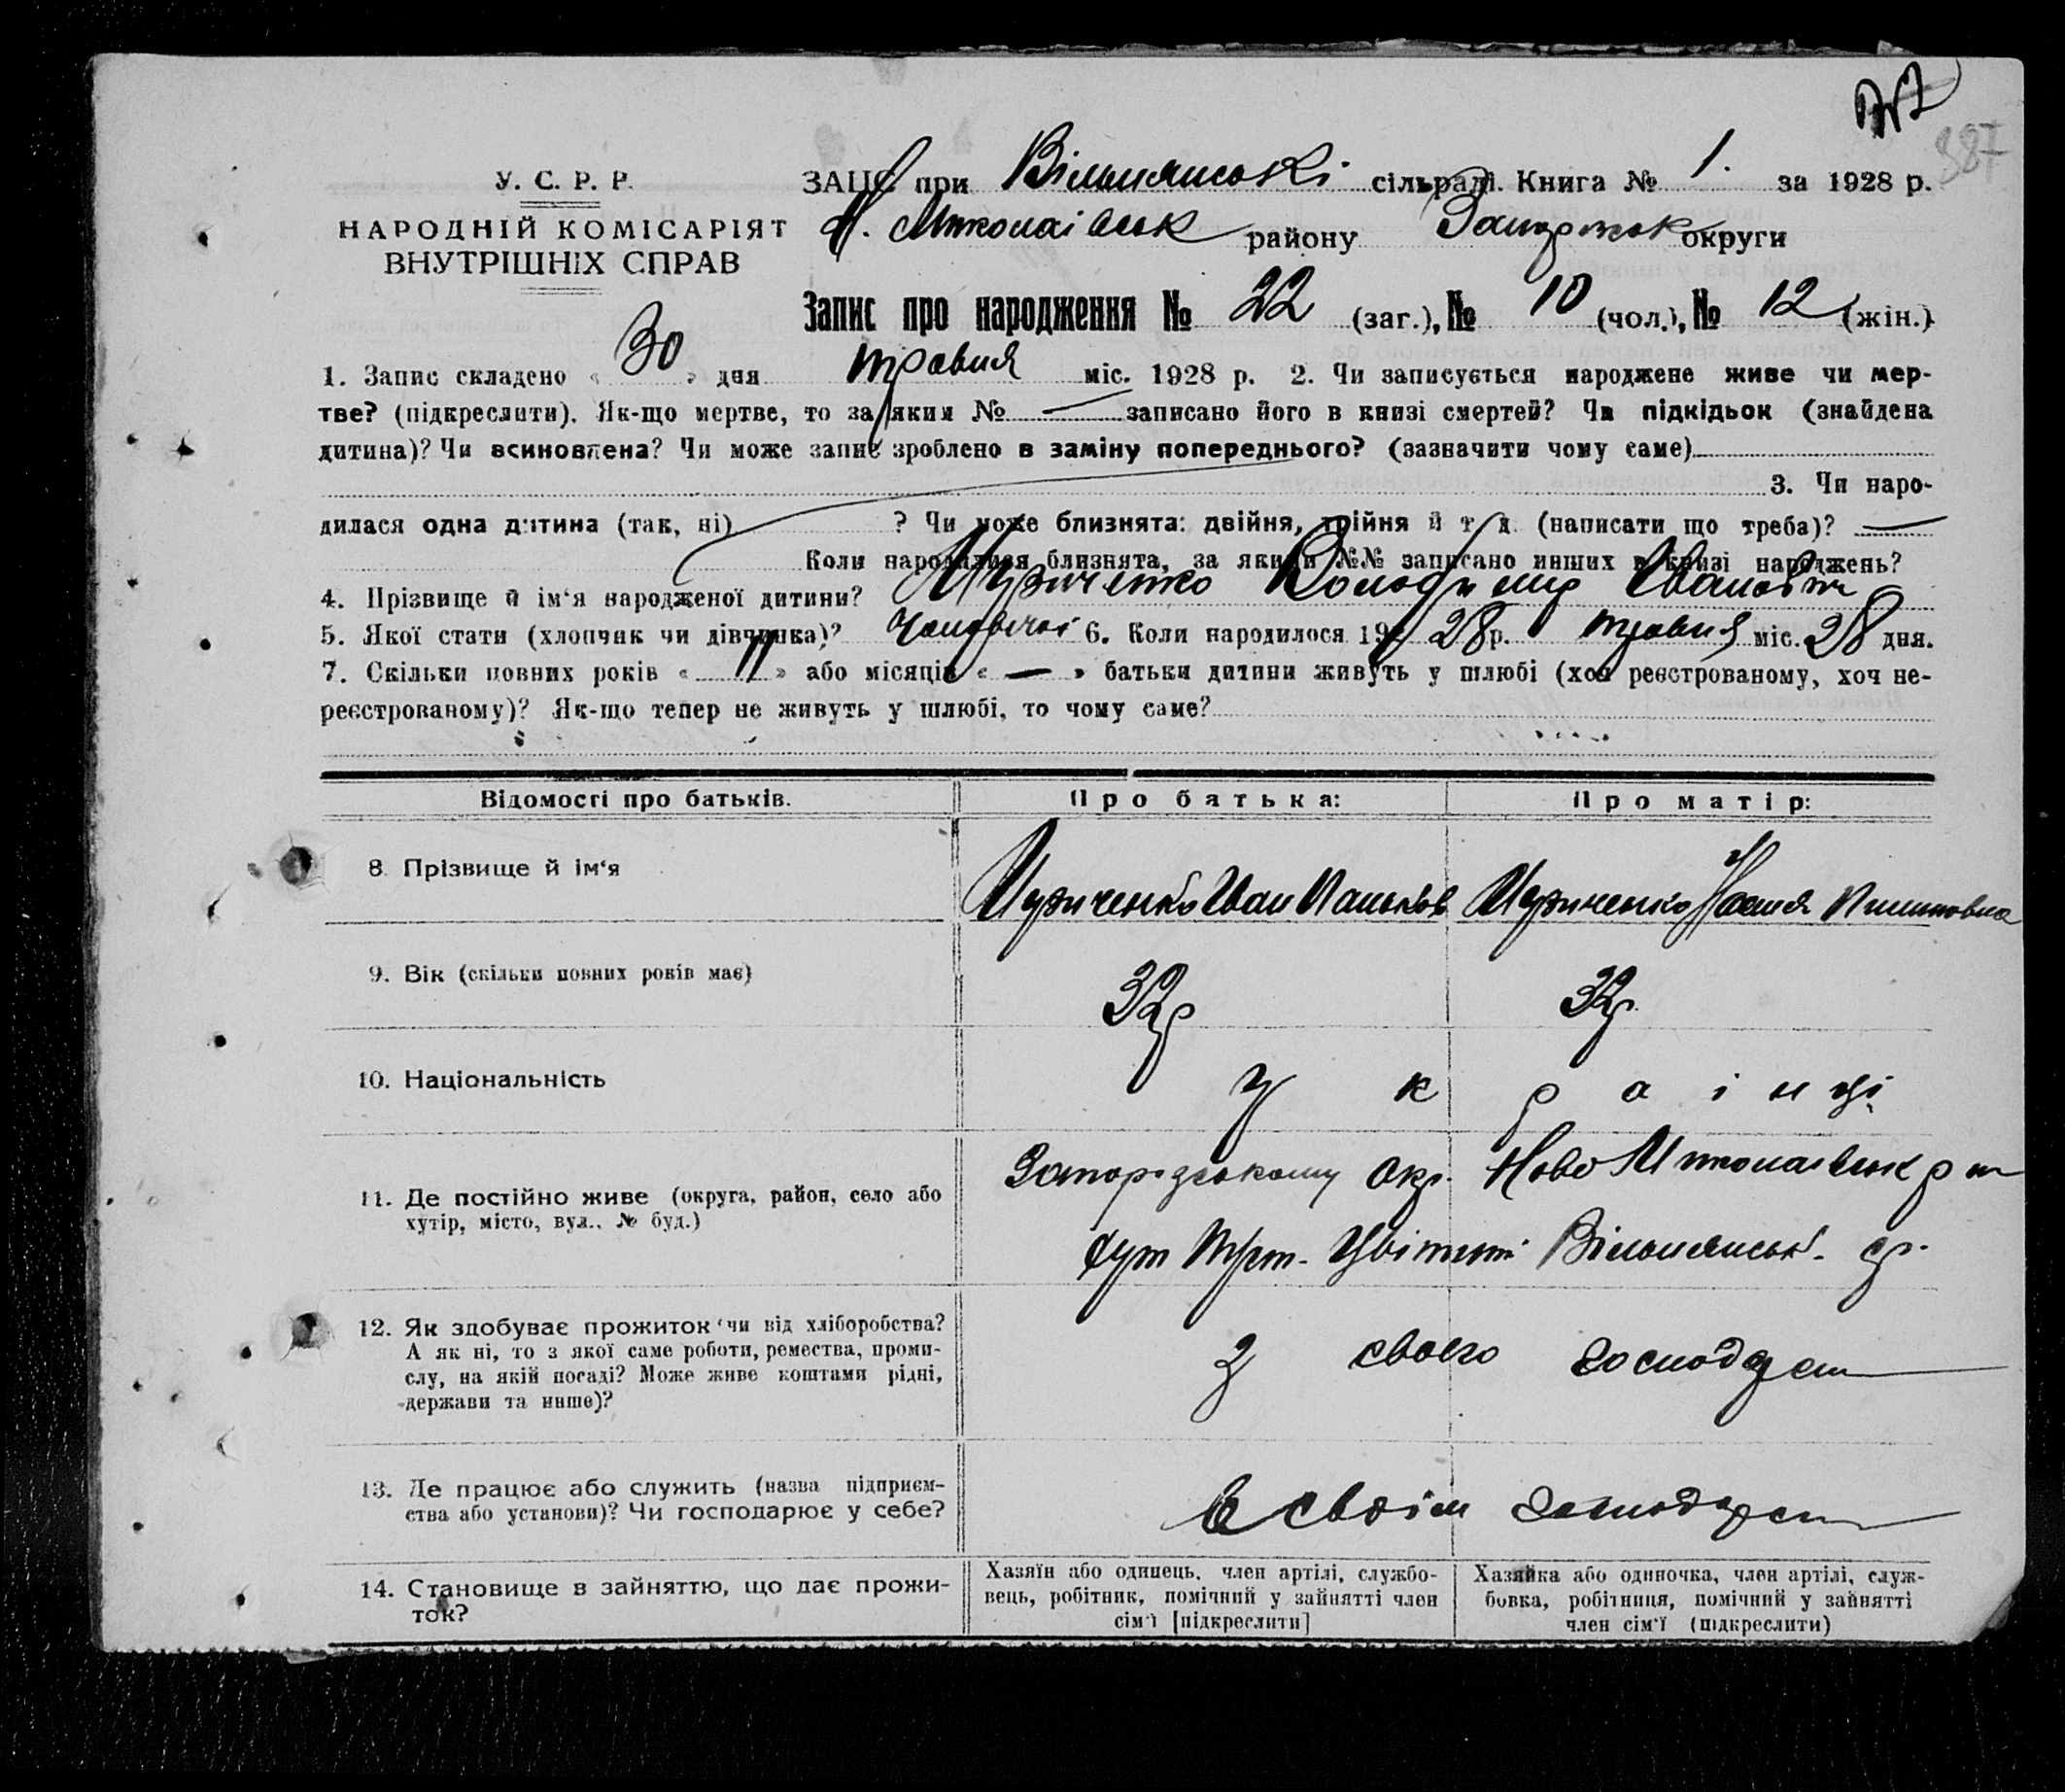 387
У. С. Р. Р.
НАРОДНІЙ КОМІСАРІЯТ
ВНУТРІШНІХ СПРАВ
ЗАЦС при Вільнянські сільраді. Книга № 1. за 1928 р.
Н. Миколаївськ району Запоріжськ округи
Запис про народження № 22 (заг.), № 10 (чол.), № 12 (жін.)
1. Запис складено « 30 » дня травня міс. 1928 р. 2. Чи записується народжене живе чи мер-
тве? (підкреслити). Як-що мертве, то за яким № — записано його в книзі смертей? Чи підкідьок (знайдена
дитина)? Чи всиновлена? Чи може запис зроблено в заміну попереднього? (зазначити чому саме)
3. Чи наро-
дилася одна дитина (так, ні) ? Чи може близнята: двійня, трійня й т. д. (написати що треба)? —
Коли народилися близнята, за якими №№ записано инших в книзі народжень?
4. Прізвище й ім‘я народженої дитини? Музиченко Володимир Іванович
5. Якої стати (хлопчик чи дівчинка)? чоловічої 6. Коли народилося 192 28 р. травня міс. 28 дня.
7. Скільки повних років « 11 » або місяців « — » батьки дитини живуть у шлюбі (хоч реєстрованому, хоч не-
реєстрованому)? Як-що тепер не живуть у шлюбі, то чому саме?
Відомості про батьків. Про батька: Про матір:
8. Прізвище й ім‘я Музиченко Іван Музиченко
9. Вік (скільки повних років має) 32 р 32 р.
10. Національність українці
11. Де постійно живе (округа, район, село або
хутір, місто, вул., № буд.)
Запорізькому окр. Ново Миколаївськ р
хут Вільнянськ. ср.
12. Як здобуває прожиток чи від хліборобства?
А як ні, то з якої саме роботи, ремества, проми-
слу, на якій посаді? Може живе коштами рідні,
держави та инше)?
З свого господарст
13. Де працює або служить (назва підприєм-
ства або установи)? Чи господарює у себе?
в своїм господарст
14. Становище в зайняттю, що дає прожи-
ток?
Хазяїн або одинець, член артілі, службо-
вець, робітник, помічний у зайнятті член
сім‘ї [підкреслити]
Хазяйка або одиночка, член артілі, служ-
бовка, робітниця, помічний у зайнятті
член сім‘ї (підкреслити)